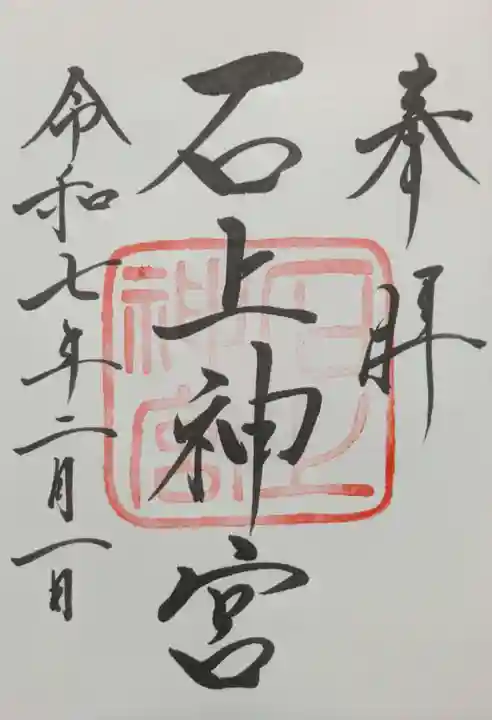 奉拝
石上神宮
石上
神宮
令和七年二月一日